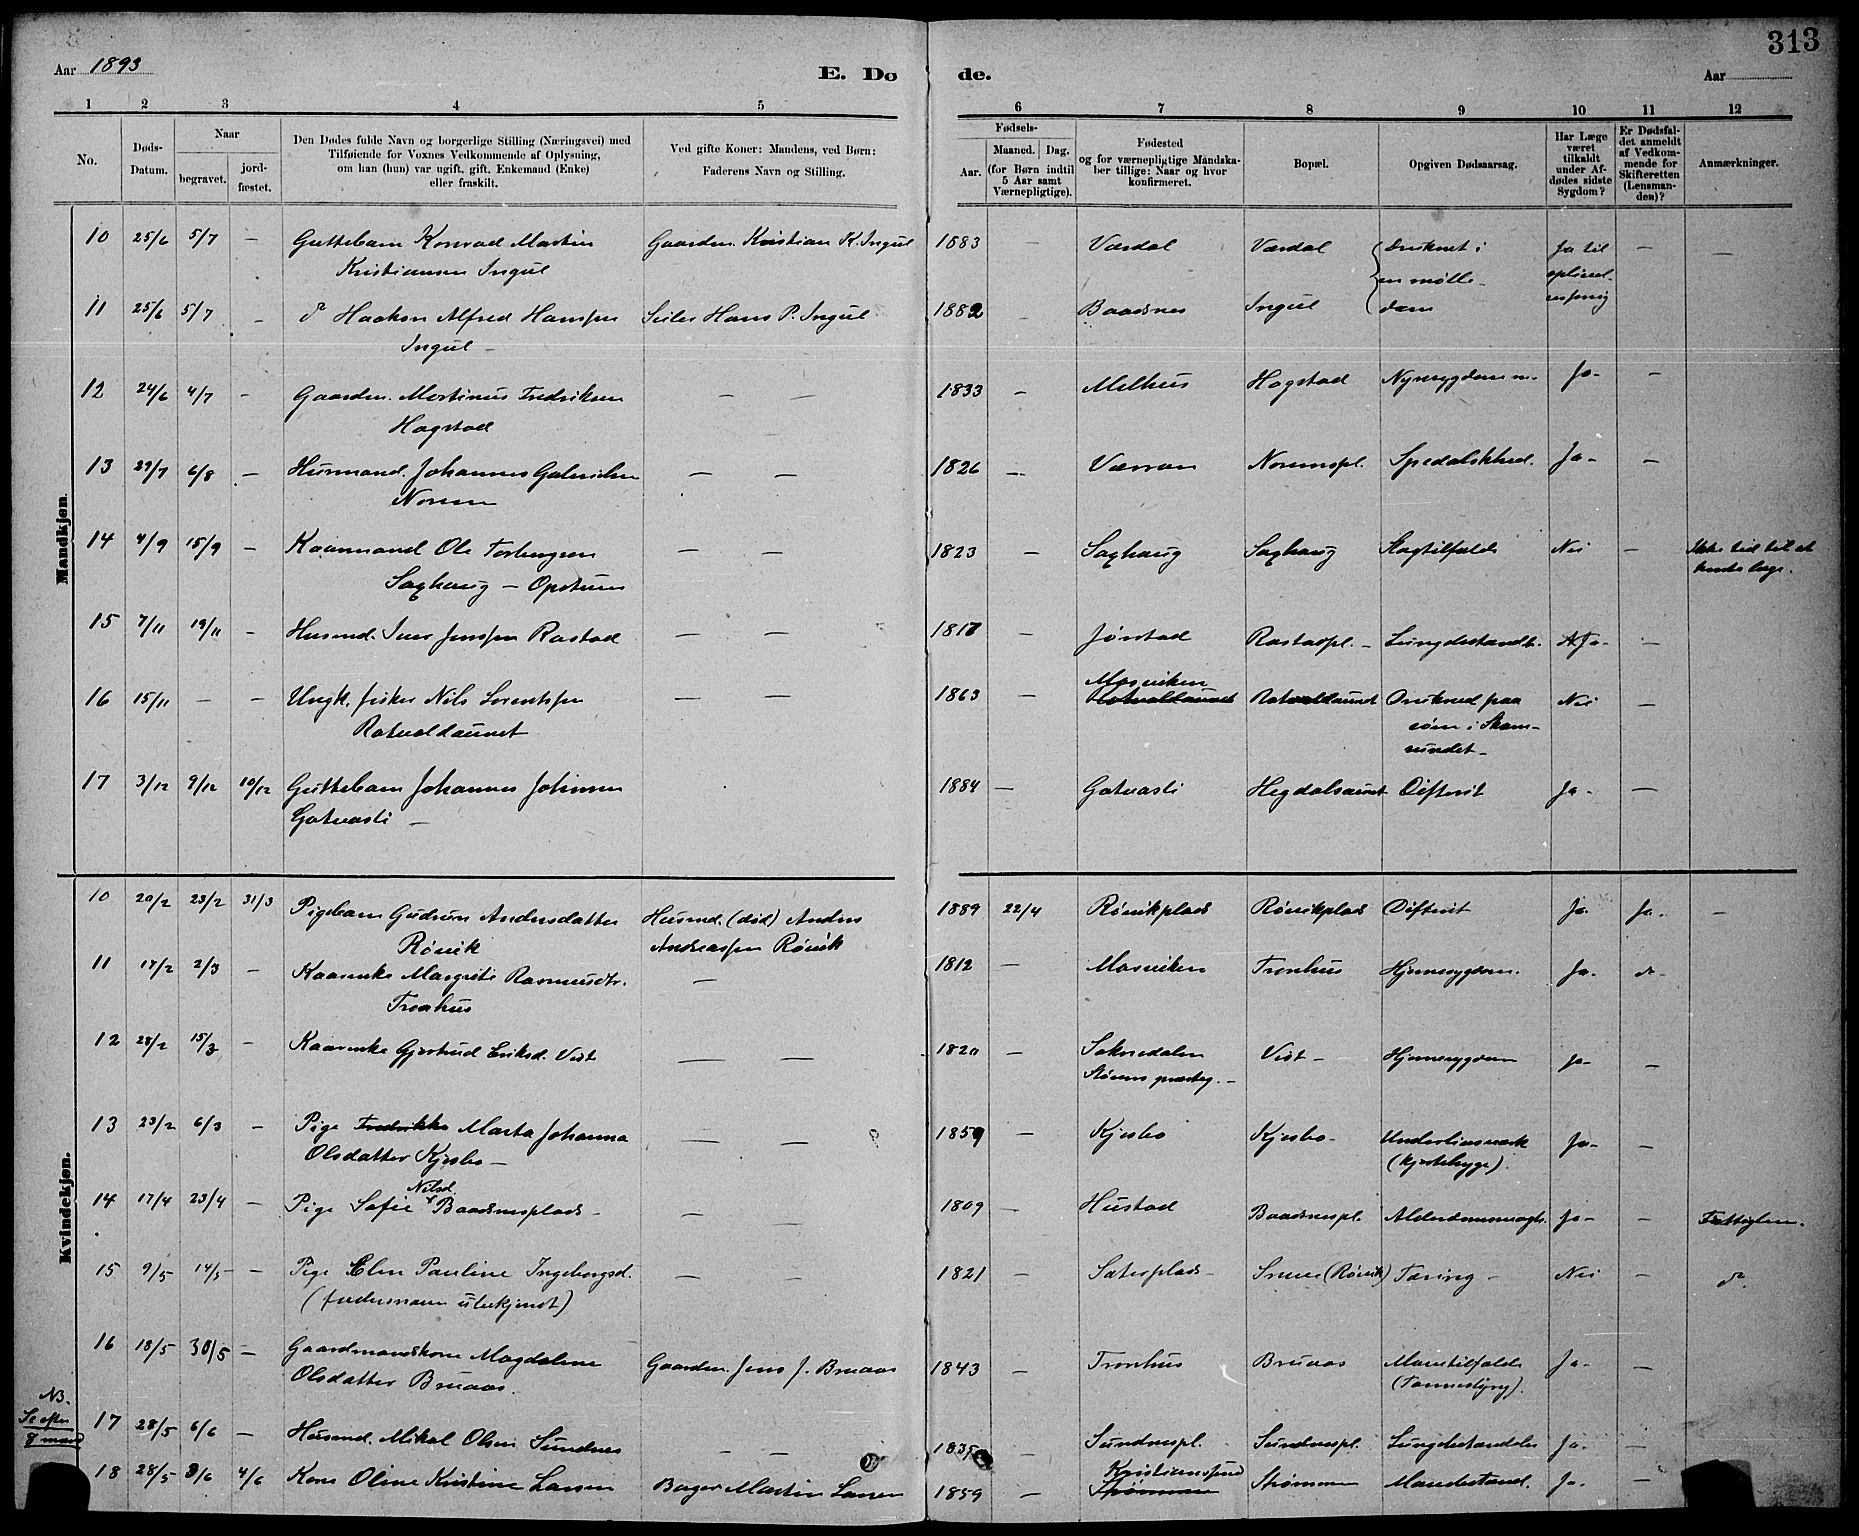 313
Aar 1893
E. Dø
de.
Aar
1 2 3 4 5 6 7 8 9 10 11 12
No.
Døds-
Datum.
Naar
begravet.
jord-
fæstet.
Den Dødes fulde Navn og borgerlige Stilling (Næringsvei) med
Tilføiende for Voxnes Vedkommende af Oplysning,
om han (hun) var ugift, gift, Enkemand (Enke)
eller fraskilt.
Ved gifte Koner: Mandens, ved Børn:
Faderens Navn og Stilling.
Fødsels-
Aar.
Maaned. Dag.
(for Børn indtil
5 Aar samt
Værnepligtige).
Fødested
og for værnepligtige Mandska-
ber tillige: Naar og hvor
konfirmeret.
Bopæl.
Opgiven Dødsaarsag.
Har Læge
været
tilkaldt
under Af-
dødes sidste
Sygdom?
Er Dødsfal-
det anmeldt
af Vedkom-
mende for
Skifteretten
(Lensman-
den)?
Anmærkninger.
Mandkjøn.
10 25/6 5/7 - Guttebarn Konrad Martin Gaardm. Kristian K. Ingul 1883 - Værdal Værdal Druknet i Ja til -
Kristiansen Ingul en mølle- oplivel-
11 25/6 5/7 - do Haakon Alfred Hansen Seiler Hans P. Ingul 1882 - Baadsnes Ingul dam
Ingul -
12 24/6 4/7 - Gaardm. Martinus Fredriksen - - 1833 - Melhus Hagstad Nyresygdom Ja- -
Hagstad
13 29/7 6/8 - Husmand. Johannes Gabrielsen - - 1826 - Værran Noremspl. Spedalskhed. Ja- -
Norem
14 4/9 15/9 - Kaarmand Ole Torbergsen - - 1823 - Saxhaug Saxhaug Slagtilfælde Nei - Ikke tid til at
Saxhaug - Opstuen hente læge.
15 7/11 19/11 - Husmd. Iver Jenssen Rostad - - 1817 - Jørstad Rostadpl. - Lungebetændb. Ja- -
16 15/11 - - Ungk. fisker Nils Lorentsen - - 1863 - Mosviken Ratvoldaunet Druknet paa Nei -
Ratvoldaunet Ratvoldaunet søen i Skarn-
sundet-
17 3/12 9/12 10/12 Guttebarn Johannes Johnsen 1884 - Gotvasli Hegdalsaunet Difterit Ja- -
Gotvasli -
Kvindekjøn.
10 20/2 23/2 31/3 Pigebarn Gudrun Andersdatter Husmd. (død) Anders 1889 22/4 Røvikplads Røvikplads Difterit Ja- Ja- -
Røvik Andreassen Røvik
11 18/2 2/3 - Kaarenke Margrete Rasmusdtr. - 1812 - Mosviken Tronhus Hjernesygdom. Ja- do-
Tronhus
12 28/2 15/3 - Kaarenke Gjertrud Eriksd. Vist - - 1820 - Soknedalen Vist - Hjernesygdom Ja- -
Størens præsteg. -
13 23/2 6/3 - Pige Fredrikke Marta Johanna - - 1859 - Kjesbo Kjesbo- Underlivsværk Ja- -
Olsdatter Kjesbo -
14 17/4 23/4 - Pige Sofie Nilsd. Baadsnesplads - - - 1809 - Hustad Baadsnespl. Alderdomssvagh. Ja- - Fattiglem.
15 9/5 14/5 - Pige Elen Pauline Ingeborgsd. - - 1821 - Saterplads - (Røvik) Tæring - Nei - do.
(fadersnavn ubekjendt)
16 18/5 30/5 - Gaardmandskone Magdalene Gaardm. Jens J. Bruaas 1843 - Tronhus Bruaas Ja- -
Olsdatter Bruaas.
NB.
Se efter
17 28/5 6/6 - Husmd. Mikal Olsen Sundnes - - 1835 - Sundnespl. Sundnespl. Lungebetændelse Ja- -
18 28/5 3/6 4/6 Kone Oline Kristine Larsen Bager Martin Larsen 1859 - Kristianssund Strømmen Ja- -
Strømmen